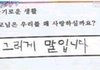 기로운 생활
모님은 우리를 왜 사랑하실까요?
그러게 말입니다